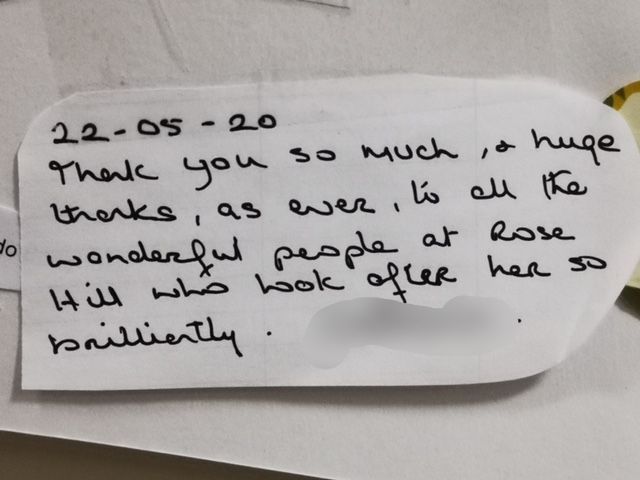 22-05-20
Thank you so much, & huge
thanks, as ever, to all the
wonderful people at Rose
Hill who look after her so
brilliantly.
do